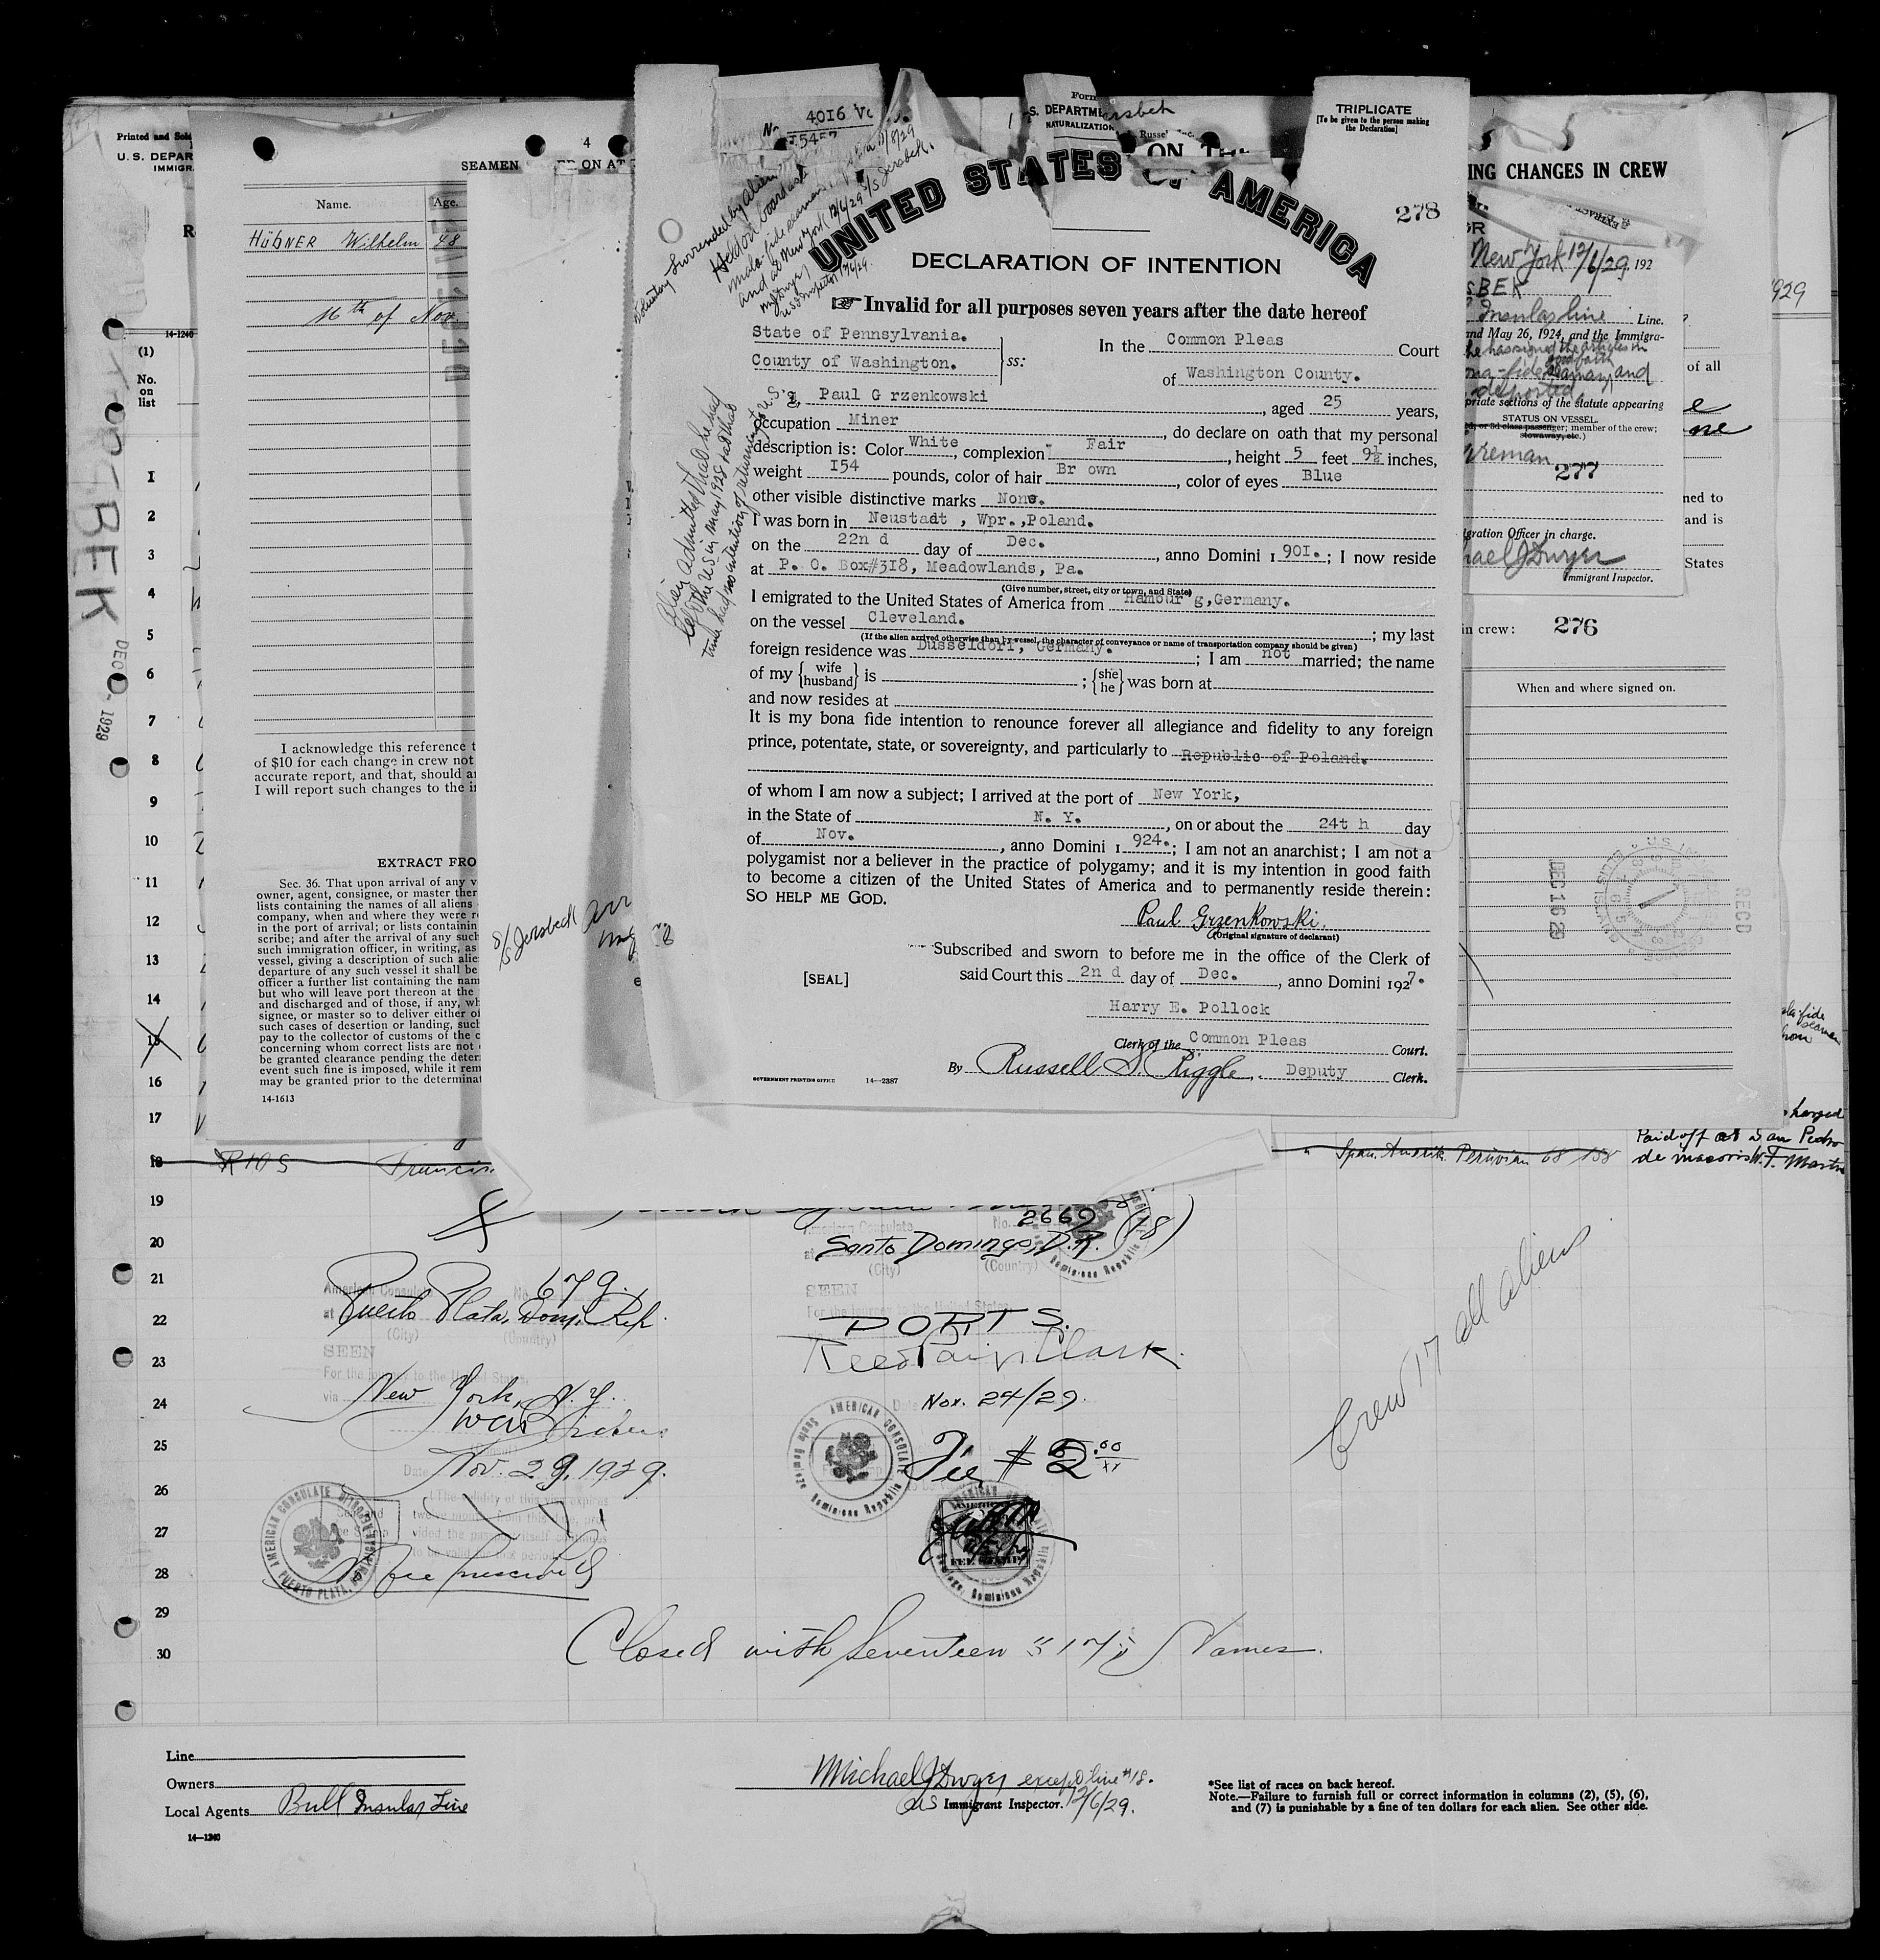 Printed and Sold
U.S. DEPAR
IMMIGRA
14-1240
(1)
No.
on
list
DEC - 1929
1
2
3
4
5
6
7
8
9
10
11
12
13
14
15
16
17
18
19
20
21
22
23
24
25
26
27
28
29
30
4
SEAMEN
Name.
Age.
HÜBNER Wilhelm 48
16th of Nov.
I acknowledge this reference t
of $10 for each change in crew not
accurate report, and that, should a
I will report such changes to the i
EXTRACT FRO
Sec. 36. That upon arrival of any v
owner, agent, consignee, or master ther
lists containing the names of all aliens
company, when and where they were r
in the port of arrival; or lists containin
scribe; and after the arrival of any such
such immigration officer, in writing, as
vessel, giving a description of such alie
departure of any such vessel it shall be
officer a further list containing the nam
but who will leave port thereon at the
and discharged and of those, if any, wh
signee, or master so to deliver either of
such cases of desertion or landing, such
pay to the collector of customs of the c
concerning whom correct lists are not
be granted clearance pending the deter
event such fine is imposed, while it rem
may be granted prior to the determinat
14-1613
S/S Jersbeck
No. 4016
Voluntary surrendered by alien
Held on board as
mala-fide seaman
and at New York 12/6/29 S/S Jersbek.
Alien admitted that he had
left the U.S in May, 1928 & at that
time had no intention of returning to U.S.
S. DEPARTME
NATURALIZATION
TRIPLICATE
[To be given to the person making
the Declaration]
UNITED STATES OF AMERICA
278
DECLARATION OF INTENTION
☞ Invalid for all purposes seven years after the date hereof
State of Pennsylvania.
County of Washington. ss:
In the Common Pleas Court
of Washington County.
I, Paul G rzenkowski, aged 25 years,
occupation Miner, do declare on oath that my personal
description is: Color White, complexion Fair, height 5 feet 9½ inches,
weight 154 pounds, color of hair Br own, color of eyes Blue
other visible distinctive marks None.
I was born in Neustadt , Wpr.,Poland.
on the 22n d day of Dec., anno Domini 1 901.; I now reside
at P. O. Box#318, Meadowlands, Pa.
(Give number, street, city or town, and State)
I emigrated to the United States of America from Hamour g,Germany.
on the vessel Cleveland.; my last
(If the alien arrived otherwise than by vessel, the character of conveyance or name of transportation company should be given)
foreign residence was Dusseldorf, Germany.; I am not married; the name
of my {wife husband} is ; {she he} was born at
and now resides at
It is my bona fide intention to renounce forever all allegiance and fidelity to any foreign
prince, potentate, state, or sovereignty, and particularly to Republic of Poland.
of whom I am now a subject; I arrived at the port of New York,
in the State of N. Y., on or about the 24t h day
of Nov., anno Domini 1 924.; I am not an anarchist; I am not a
polygamist nor a believer in the practice of polygamy; and it is my intention in good faith
to become a citizen of the United States of America and to permanently reside therein:
SO HELP ME GOD.
Paul Grzenkowski.
(Original signature of declarant)
Subscribed and sworn to before me in the office of the Clerk of
[SEAL] said Court this 2n d day of Dec., anno Domini 1927.
Harry E. Pollock
Clerk of the Common Pleas Court.
By Russell S. Riggle, Deputy Clerk.
GOVERNMENT PRINTING OFFICE 14-2387
ING CHANGES IN CREW
New York 12/6/29, 192
SBEK
Insular Line Line.
and May 26, 1924, and the Immigra-
he has signed the articles in
good faith
ona-fide seaman, and
deported.
priate sections of the statute appearing
STATUS ON VESSEL
d, or 3d class passenger; member of the crew;
stowaway, etc.)
ireman
277
gration Officer in charge.
hael J Dwyer
Immigrant Inspector.
1929
of all
ned to
and is
States
in crew: 276
When and where signed on.
DEC 16 29
REC'D
RIOS Francis
" Span. Amerik. Peruvian 68 158
Paid off at San Pedro
de macoris W.T. Martin
American Consulate No. 679.
at Puerto Plata, Dom. Rep.
(City) (Country)
SEEN
For the journey to the United States,
via New York, N.Y.
Date Nov. 29, 1929.
AMERICAN CONSULATE PUERTO PLATA, DOMINICAN REPUBLIC
American Consulate No. 2669 (18)
at Santo Domingo, D.R.
(City) (Country)
SEEN
For the journey to the United States
PORTS.
Reed Paige Clark.
Nov. 24/29.
AMERICAN CONSULATE Santo Domingo Dominican Republic
Fee $ 2.00
FEE STAMP
Crew 17 all aliens
Closed with Seventeen "17" Names.
Line
Owners
Local Agents Bull Insular Line
14-1240
Michael J Dwyer except line #18.
US Immigrant Inspector. 12/6/29.
*See list of races on back hereof.
Note.—Failure to furnish full or correct information in columns (2), (5), (6),
and (7) is punishable by a fine of ten dollars for each alien. See other side.